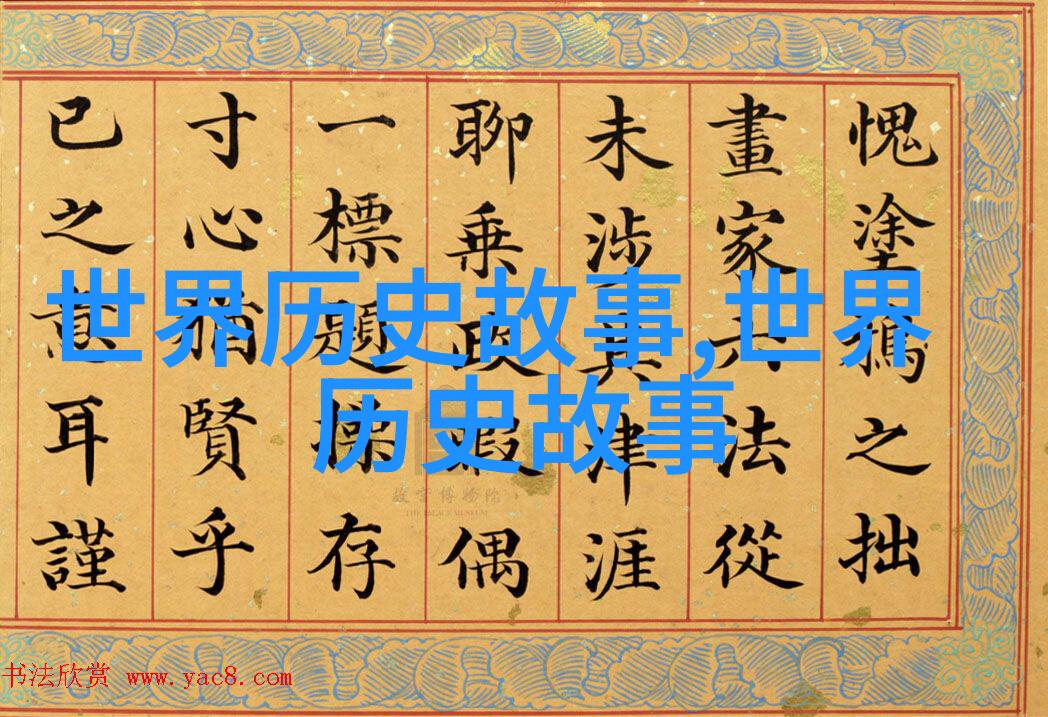 愧塗鴉之拙
畫家六法從
未涉其津涯
聊乘政暇偶
一標題操存
寸心猶賢乎
已之意耳謹
世界历史故事,世界
历史故事
故宫博物院
THE PALACE MUSEUM
书法欣赏 www.yac8.com